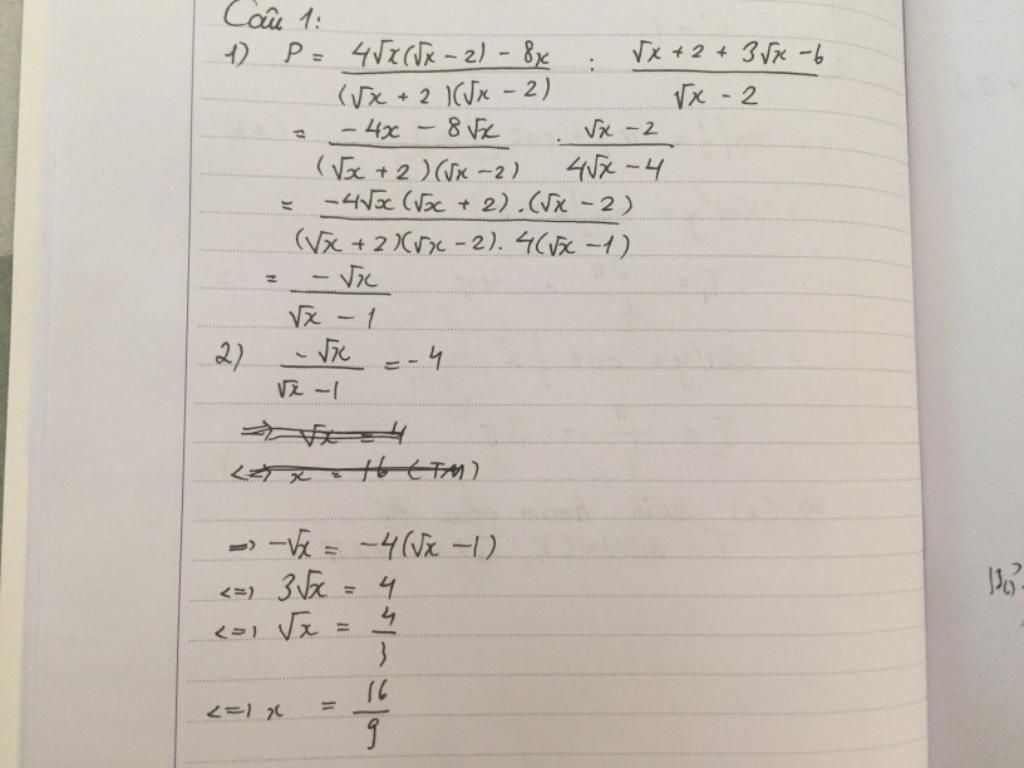 Câu 1:
1) P = (4√x(√x - 2) - 8x)/((√x + 2)(√x - 2)) : (√x + 2 + 3√x - 6)/(√x - 2)
= (-4x - 8√x)/((√x + 2)(√x - 2)) . (√x - 2)/(4√x - 4)
= (-4√x(√x + 2).(√x - 2))/((√x + 2)(√x - 2). 4(√x - 1))
= (-√x)/(√x - 1)
2) (-√x)/(√x - 1) = -4
=> √x = 4
<=> x = 16 (TM)
=> -√x = -4(√x - 1)
<=> 3√x = 4
<=> √x = 4/3
<=> x = 16/9